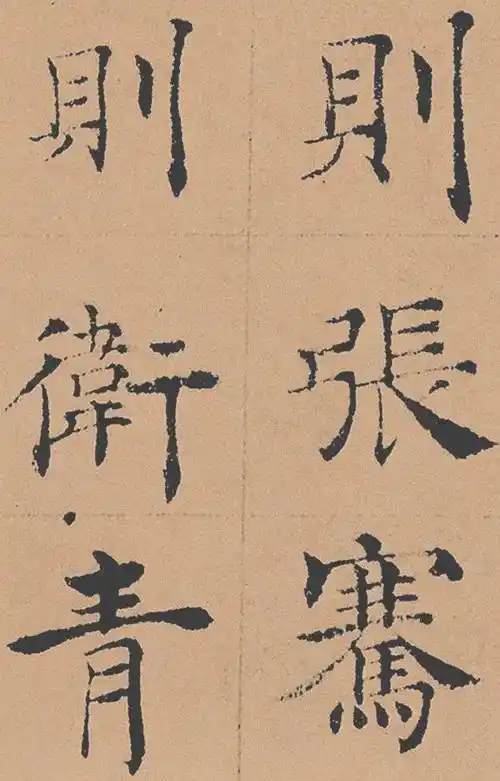 則張騫
則衛青